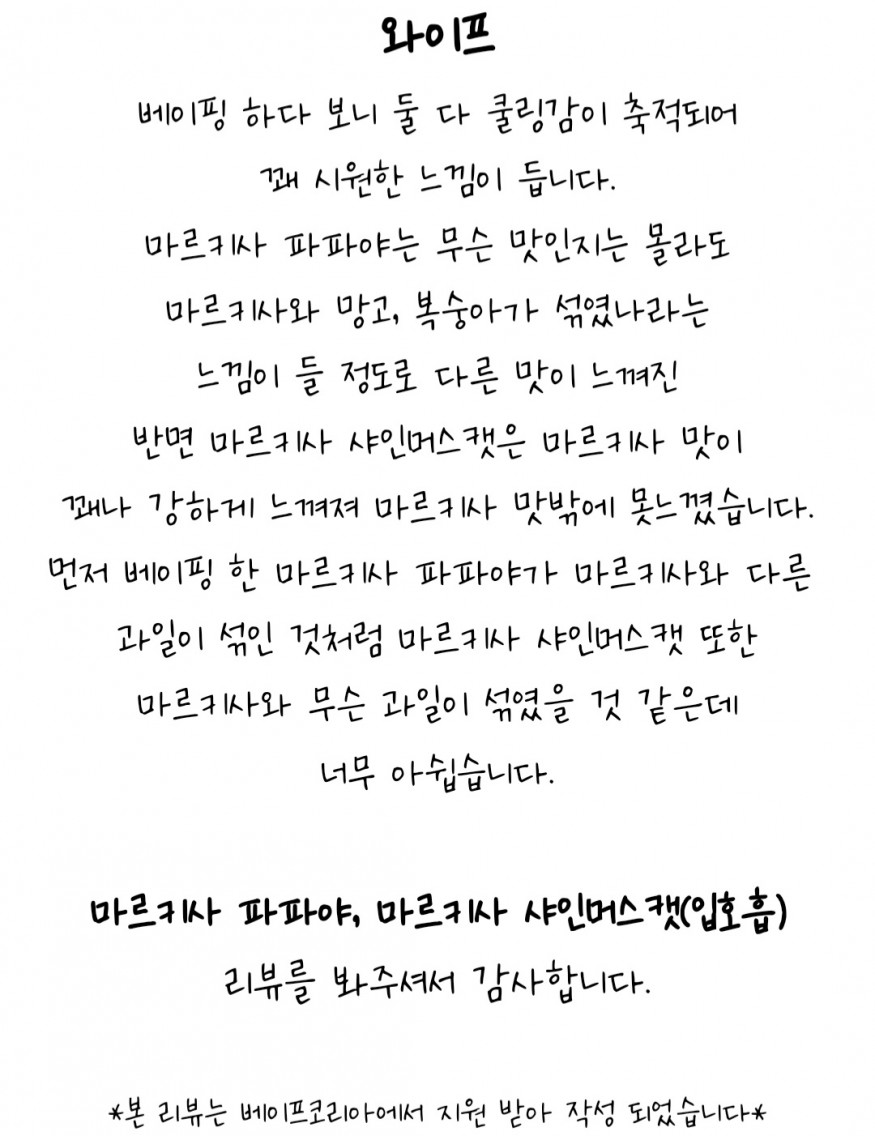 와이프
베이핑 하다 보니 둘 다 쿨링감이 축적되어
꽤 시원한 느낌이 듭니다.
마르키사 파파야는 무슨 맛인지는 몰라도
마르키사와 망고, 복숭아가 섞였나라는
느낌이 들 정도로 다른 맛이 느껴진
반면 마르키사 샤인머스캣은 마르키사 맛이
꽤나 강하게 느껴져 마르키사 맛밖에 못느꼈습니다.
먼저 베이핑 한 마르키사 파파야가 마르키사와 다른
과일이 섞인 것처럼 마르키사 샤인머스캣 또한
마르키사와 무슨 과일이 섞였을 것 같은데
너무 아쉽습니다.
마르키사 파파야, 마르키사 샤인머스캣(입호흡)
리뷰를 봐주셔서 감사합니다.
*본 리뷰는 베이프코리아에서 지원 받아 작성 되었습니다*